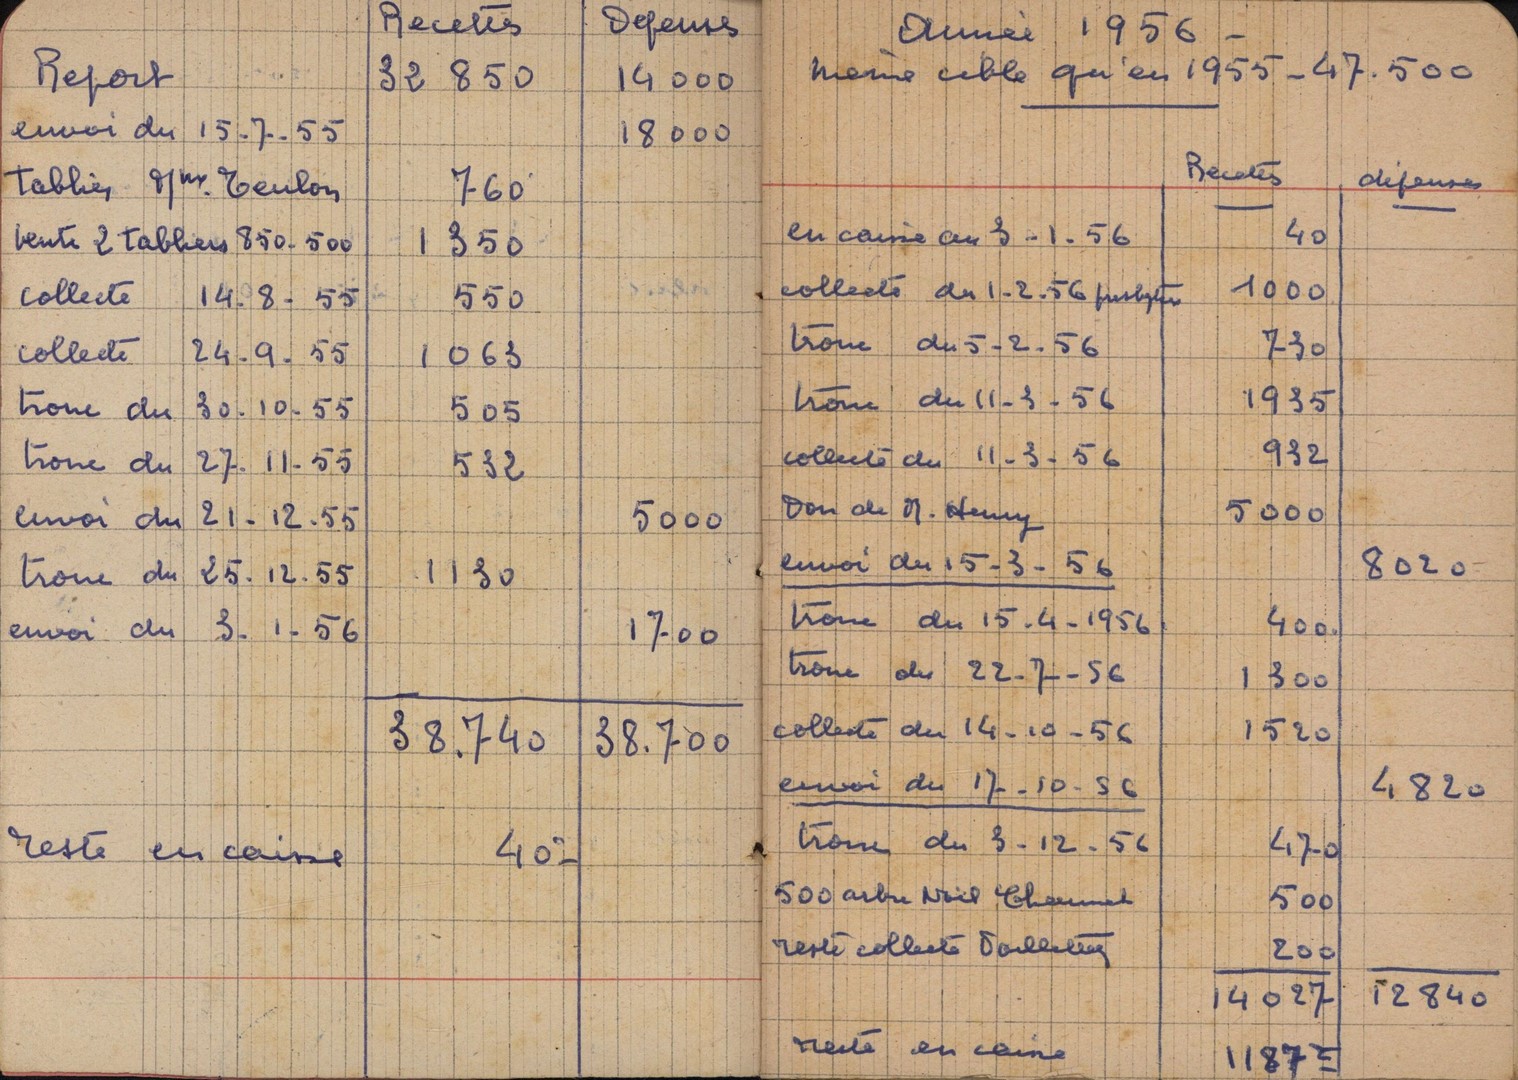 Recettes Dépenses
Report 32 850 14 000
envoi du 15.7.55 18 000
tablier Mme Teulon 760
vente 2 tabliers 850-500 1 350
collecte 14.8.55 550
collecte 24.9.55 1 063
tronc du 30.10.55 505
tronc du 27.11.55 532
envoi du 21.12.55 5000
tronc du 25.12.55 1130
envoi du 3.1.56 1700
38.740 38.700
reste en caisse 40-
Année 1956 -
même cible qu'en 1955 - 47.500
Recettes dépenses
en caisse au 3-1-56 40
collecte du 1-2-56 1000
tronc du 5-2-56 730
tronc du 11-3-56 1935
collecte du 11-3-56 932
Don de M. Henry 5000
envoi du 15-3-56 8020
tronc du 15-4-1956 400
tronc du 22-7-56 1300
collecte du 14-10-56 1520
envoi du 17-10-56 4820
tronc du 3-12-56 470
500 arbre Noël 500
reste collecte 200
14027 12840
reste en caisse 1187=